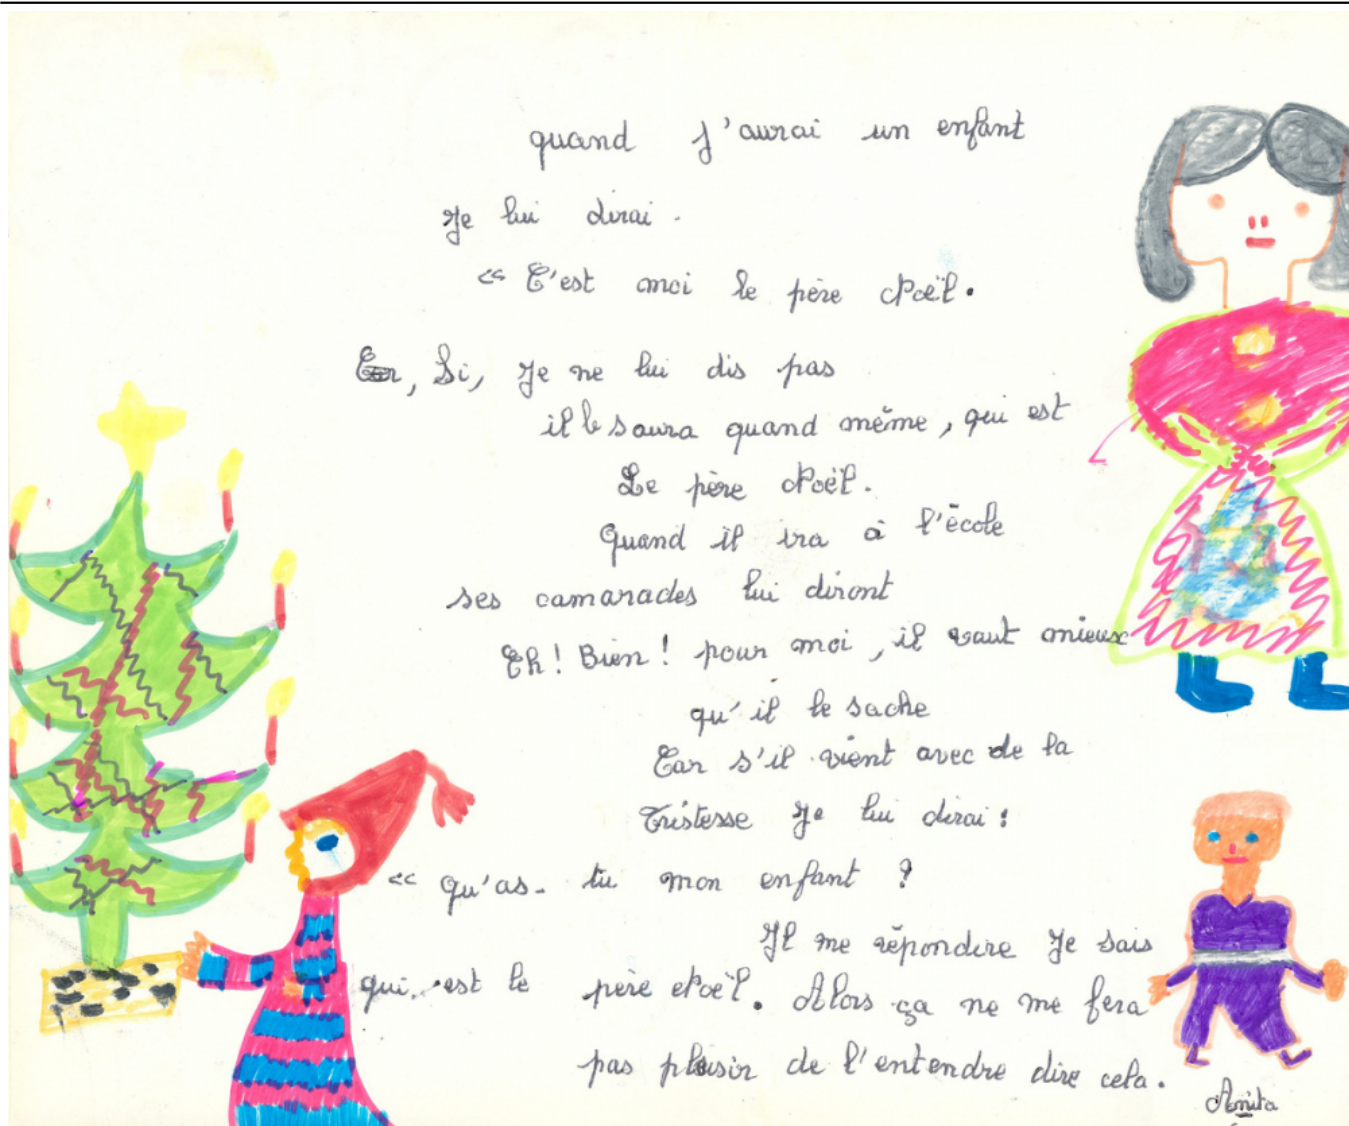 quand j'aurai un enfant
Je lui dirai.
« C'est moi le père Noël.
Car, Si, Je ne lui dis pas
il le saura quand même, qui est
Le père Noël.
Quand il ira à l'école
ses camarades lui diront
Eh! Bien! pour moi, il vaut mieux
qu'il le sache
Car s'il vient avec de la
Tristesse Je lui dirai:
« qu'as-tu mon enfant ?
Il me répondre Je sais
qui est le père Noël. Alors ça ne me fera
pas plaisir de l'entendre dire cela.
Anita